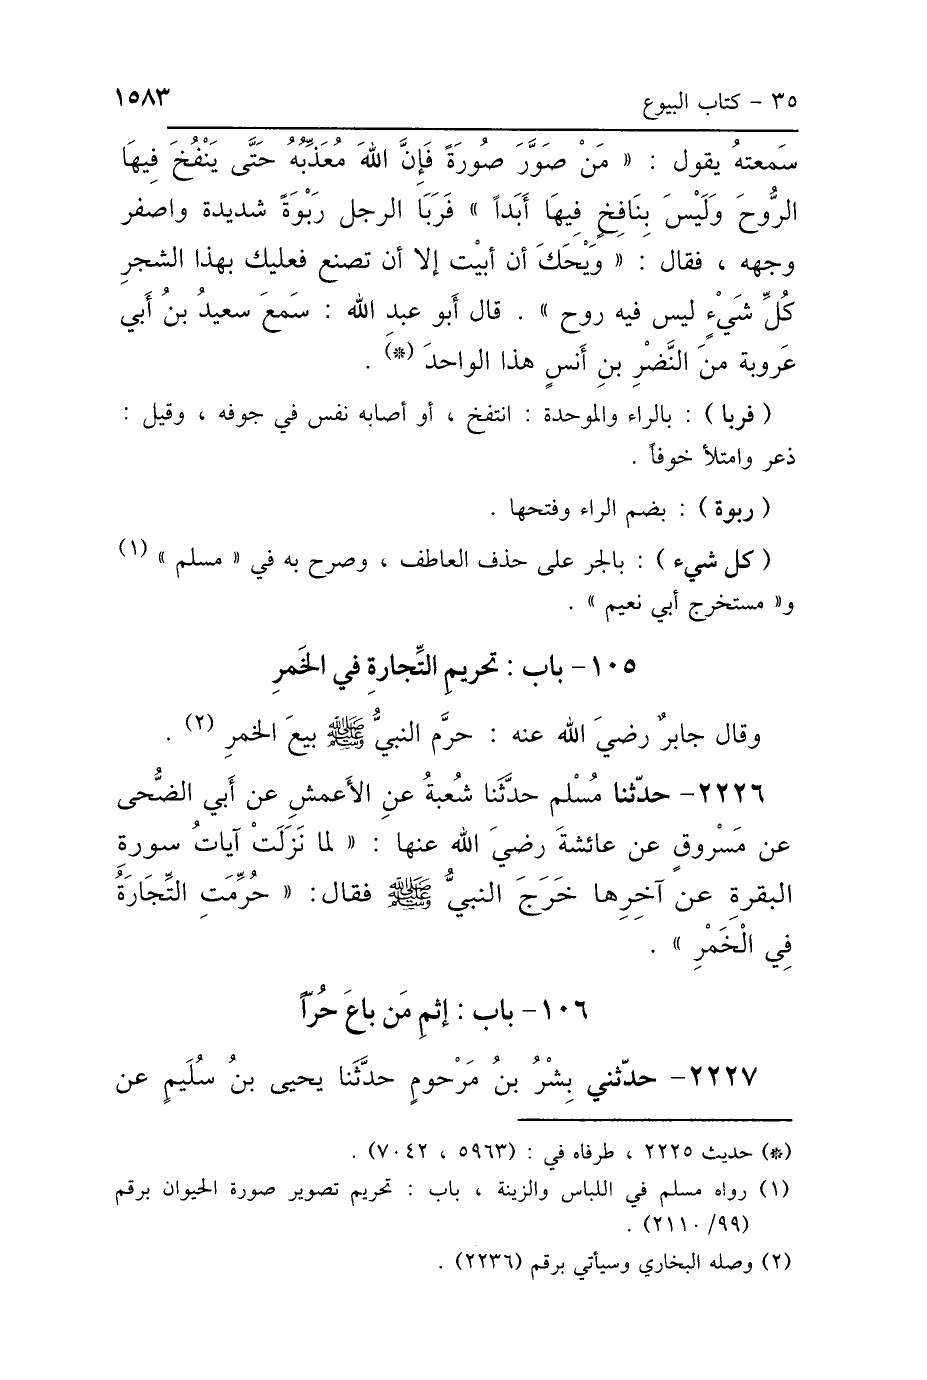 ٣٥ – كتاب البيوع ١٥٨٣
سَمعتهُ يقول : « مَنْ صَوَّرَ صُورَةً فَإِنَّ اللهَ مُعَذِّبُهُ حَتَّى يَنْفُخَ فِيهَا
الرُّوحَ وَلَيْسَ بِنَافِخٍ فِيهَا أَبَداً » فَرَبَا الرجل رَبْوَةً شديدة واصفر
وجهه ، فقال : « وَيْحَكَ أن أبيْت إلا أن تصنع فعليك بهذا الشجرِ
كُلِّ شَيْءٍ ليس فيه روح » . قال أَبو عبدِ الله : سَمعَ سعيدُ بنُ أَبي
عَروبة منَ النَّضْرِ بنِ أَنسٍ هذا الواحدَ (*) .
( فربا ) : بالراء والموحدة : انتفخ ، أو أصابه نفس في جوفه ، وقيل :
ذعر وامتلأ خوفاً .
( ربوة ) : بضم الراء وفتحها .
( كل شيء ) : بالجر على حذف العاطف ، وصرح به في « مسلم » (١)
و« مستخرج أبي نعيم » .
١٠٥- باب : تحريمِ التِّجارةِ في الخَمرِ
وقال جابرٌ رضيَ الله عنه : حرَّم النبيُّ ﷺ بيعَ الخمرِ (٢) .
٢٢٢٦- حدّثنا مُسْلم حدَّثَنا شُعبةُ عنِ الأَعمشِ عن أَبي الضُّحى
عن مَسْروقٍ عن عائشةَ رضيَ الله عنها : « لما نَزَلَتْ آياتُ سورةِ
البقرةِ عن آخِرِها خَرَجَ النبيُّ ﷺ فقال: « حُرِّمَتِ التِّجَارَةُ
فِي الْخَمْرِ » .
١٠٦- باب : إثمِ مَن باعَ حُرّاً
٢٢٢٧- حدّثني بِشْرُ بنُ مَرْحومٍ حدَّثَنا يحيى بنُ سُلَيمٍ عن
(*) حديث ٢٢٢٥ ، طرفاه في : (٥٩٦٣ ، ٧٠٤٢) .
(١) رواه مسلم في اللباس والزينة ، باب : تحريم تصوير صورة الحيوان برقم
(٢١١٠/٩٩) .
(٢) وصله البخاري وسيأتي برقم (٢٢٣٦) .